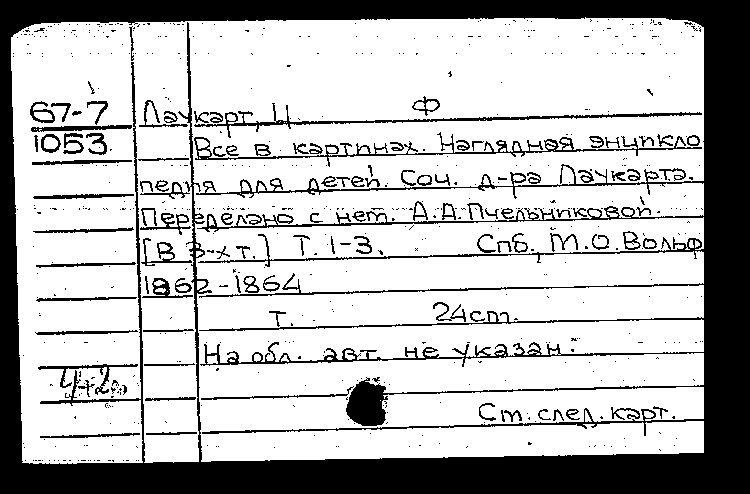 Ф
67-7 Лаукарт, Ц.
1053 Все в картинах. Наглядная энцикло
педия для детей. Соч. д-ра Лаукарта.
Переделано с нем. А.А.Пчельниковой.
[В 3-х т.] Т. 1-3. Спб., М.О.Вольф
1862-1864
т. 24cm.
На обл. авт. не указан.
Ст. след. карт.